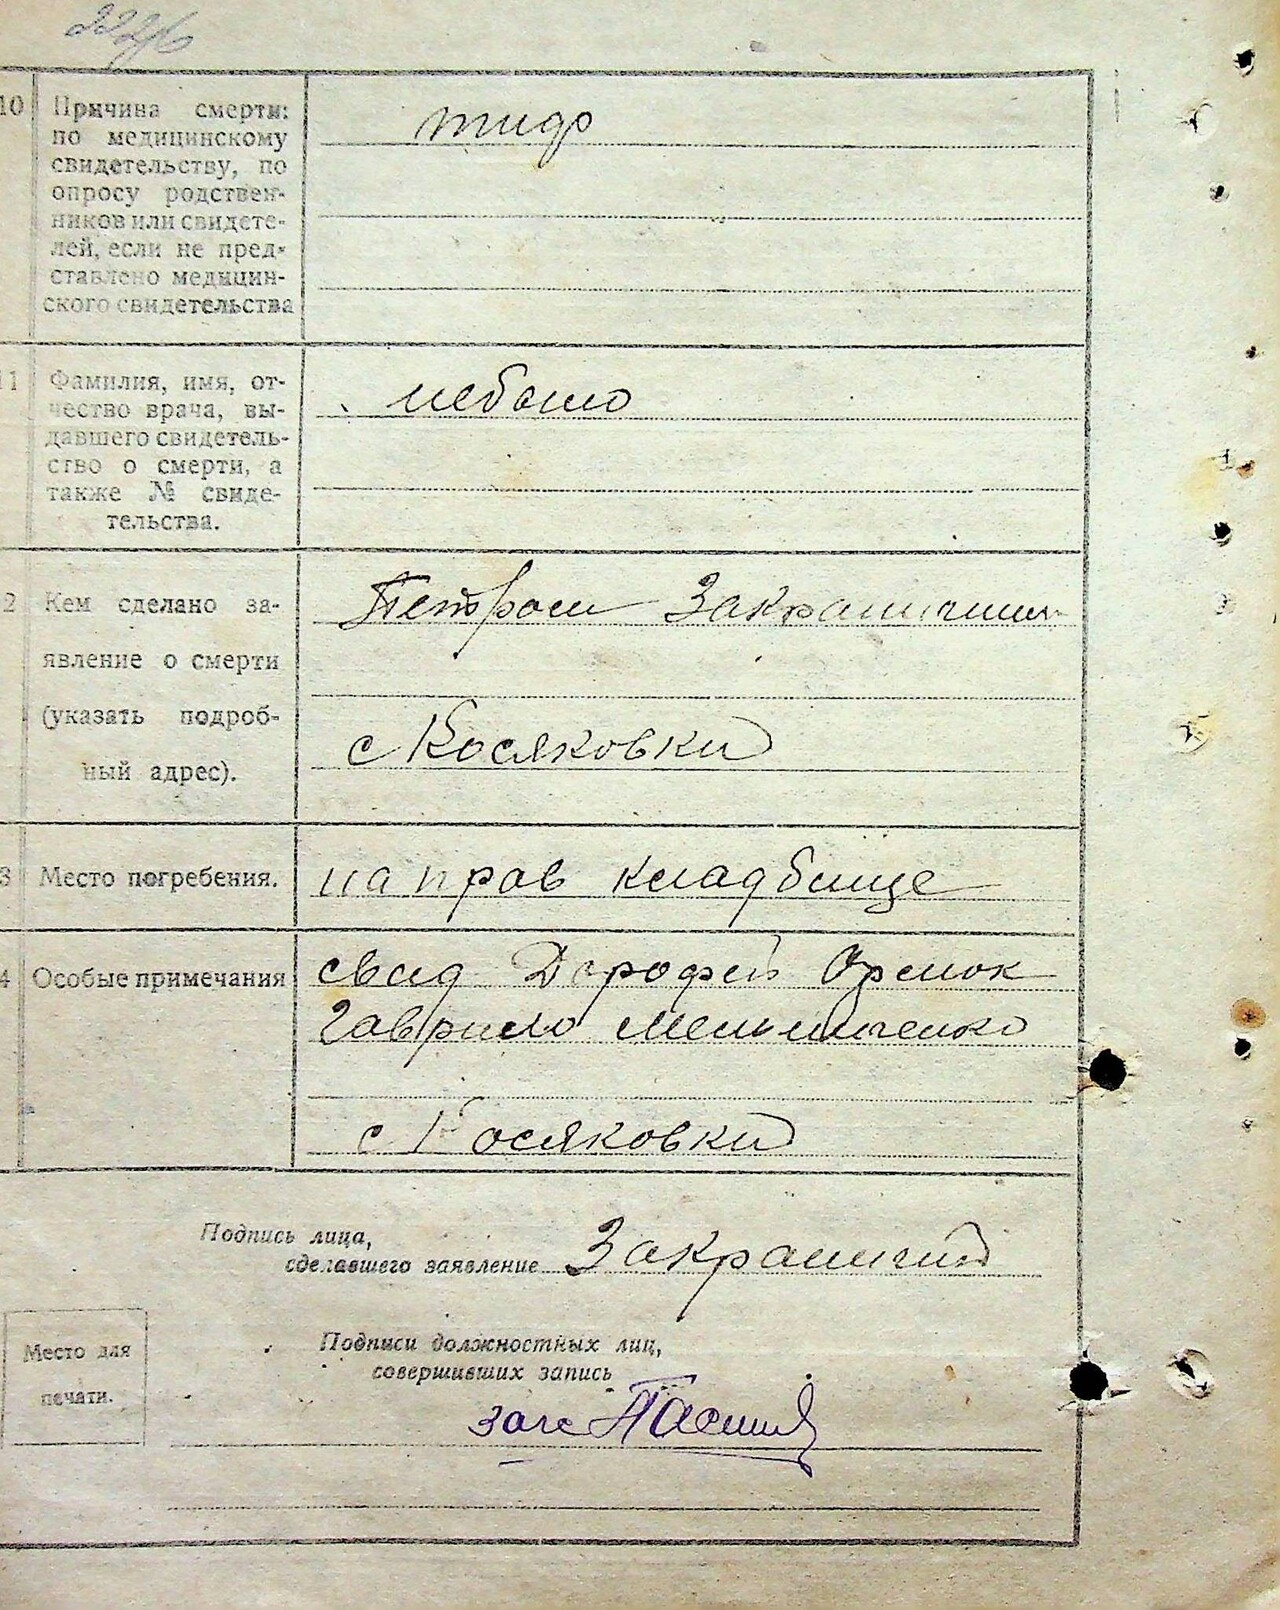 222б
10 Причина смерти: тиф
по медицинскому
свидетельству, по
опросу родствен-
ников или свидете-
лей, если не пред-
ставлено медицин-
ского свидетельства
11 Фамилия, имя, от- небыло
чество врача, вы-
давшего свидетель-
ство о смерти, а
также № свиде-
тельства.
2 Кем сделано за- Петром
явление о смерти
(указать подроб-
ный адрес). с Косяковки
3 Место погребения. на прав кладбище
4 Особые примечания свид Дорофей
Гаврило
с Косяковки
Подпись лица,
сделавшего заявление
Место для
печати.
Подписи должностных лиц,
совершивших запись